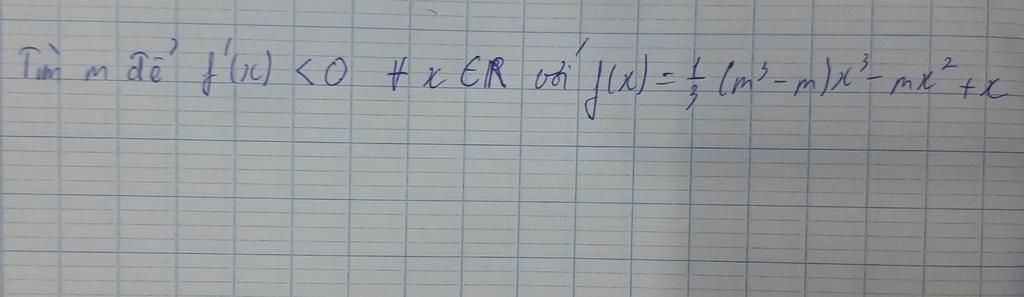 Tìm m để f'(x) < 0 ∀ x ∈ ℝ với f(x) = 1/3 (m³ - m)x³ - mx² + x